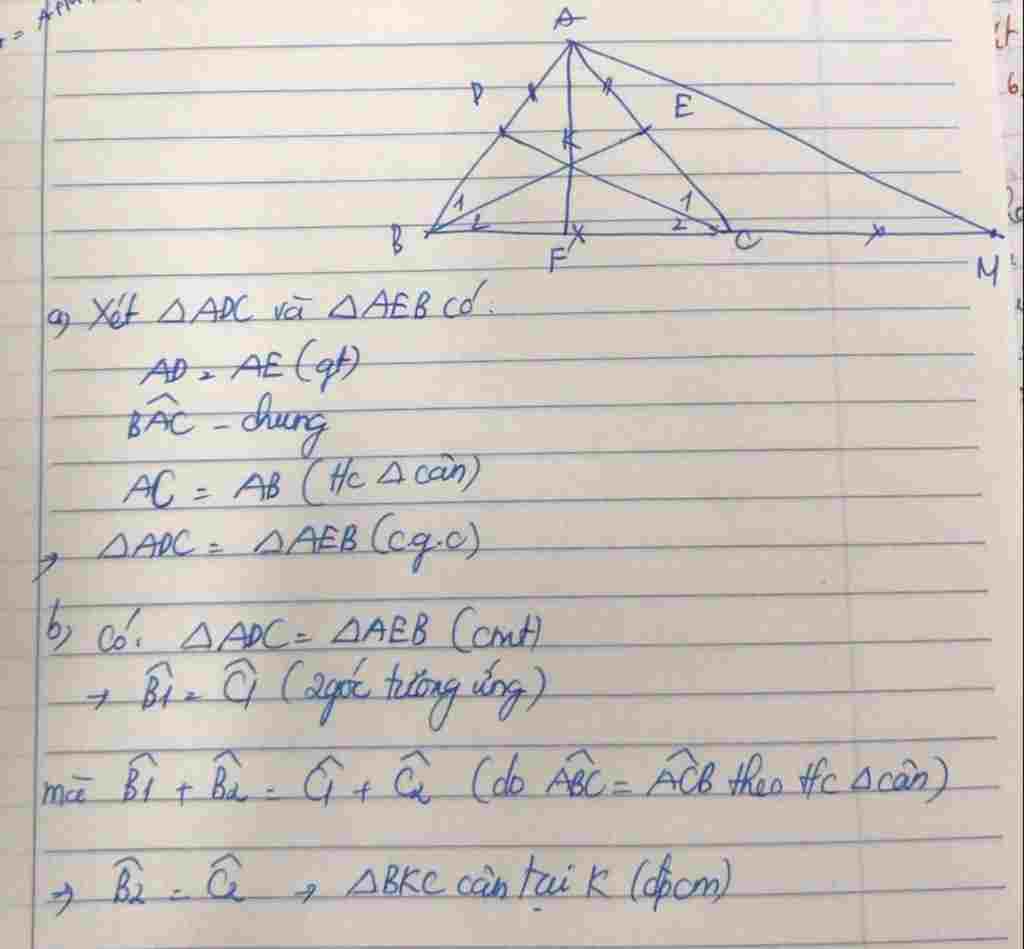 A
D
E
K
1
2
1
2
B
F
C
M
a) Xét △ADC và △AEB có:
AD = AE (gt)
BÂC - chung
AC = AB (t/c △ cân)
→ △ADC = △AEB (c.g.c)
b, Có: △ADC = △AEB (cmt)
→ B̂1 = Ĉ1 (2 góc tương ứng)
mà B̂1 + B̂2 = Ĉ1 + Ĉ2 (do ABĈ = ACB̂ theo t/c △ cân)
⇒ B̂2 = Ĉ2 → △BKC cân tại K (đpcm)